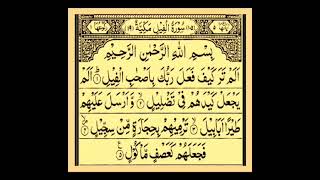 سُوْرَةُ الْفِيْلِ مَكِّيَّةٌ
بِسْمِ اللّٰهِ الرَّحْمٰنِ الرَّحِيْمِ
اَلَمْ تَرَ كَيْفَ فَعَلَ رَبُّكَ بِاَصْحٰبِ الْفِيْلِ ۝١ اَلَمْ
يَجْعَلْ كَيْدَهُمْ فِيْ تَضْلِيْلٍ ۝٢ وَّاَرْسَلَ عَلَيْهِمْ
طَيْرًا اَبَابِيْلَ ۝٣ تَرْمِيْهِمْ بِحِجَارَةٍ مِّنْ سِجِّيْلٍ ۝٤
فَجَعَلَهُمْ كَعَصْفٍ مَّاْكُوْلٍ ۝٥